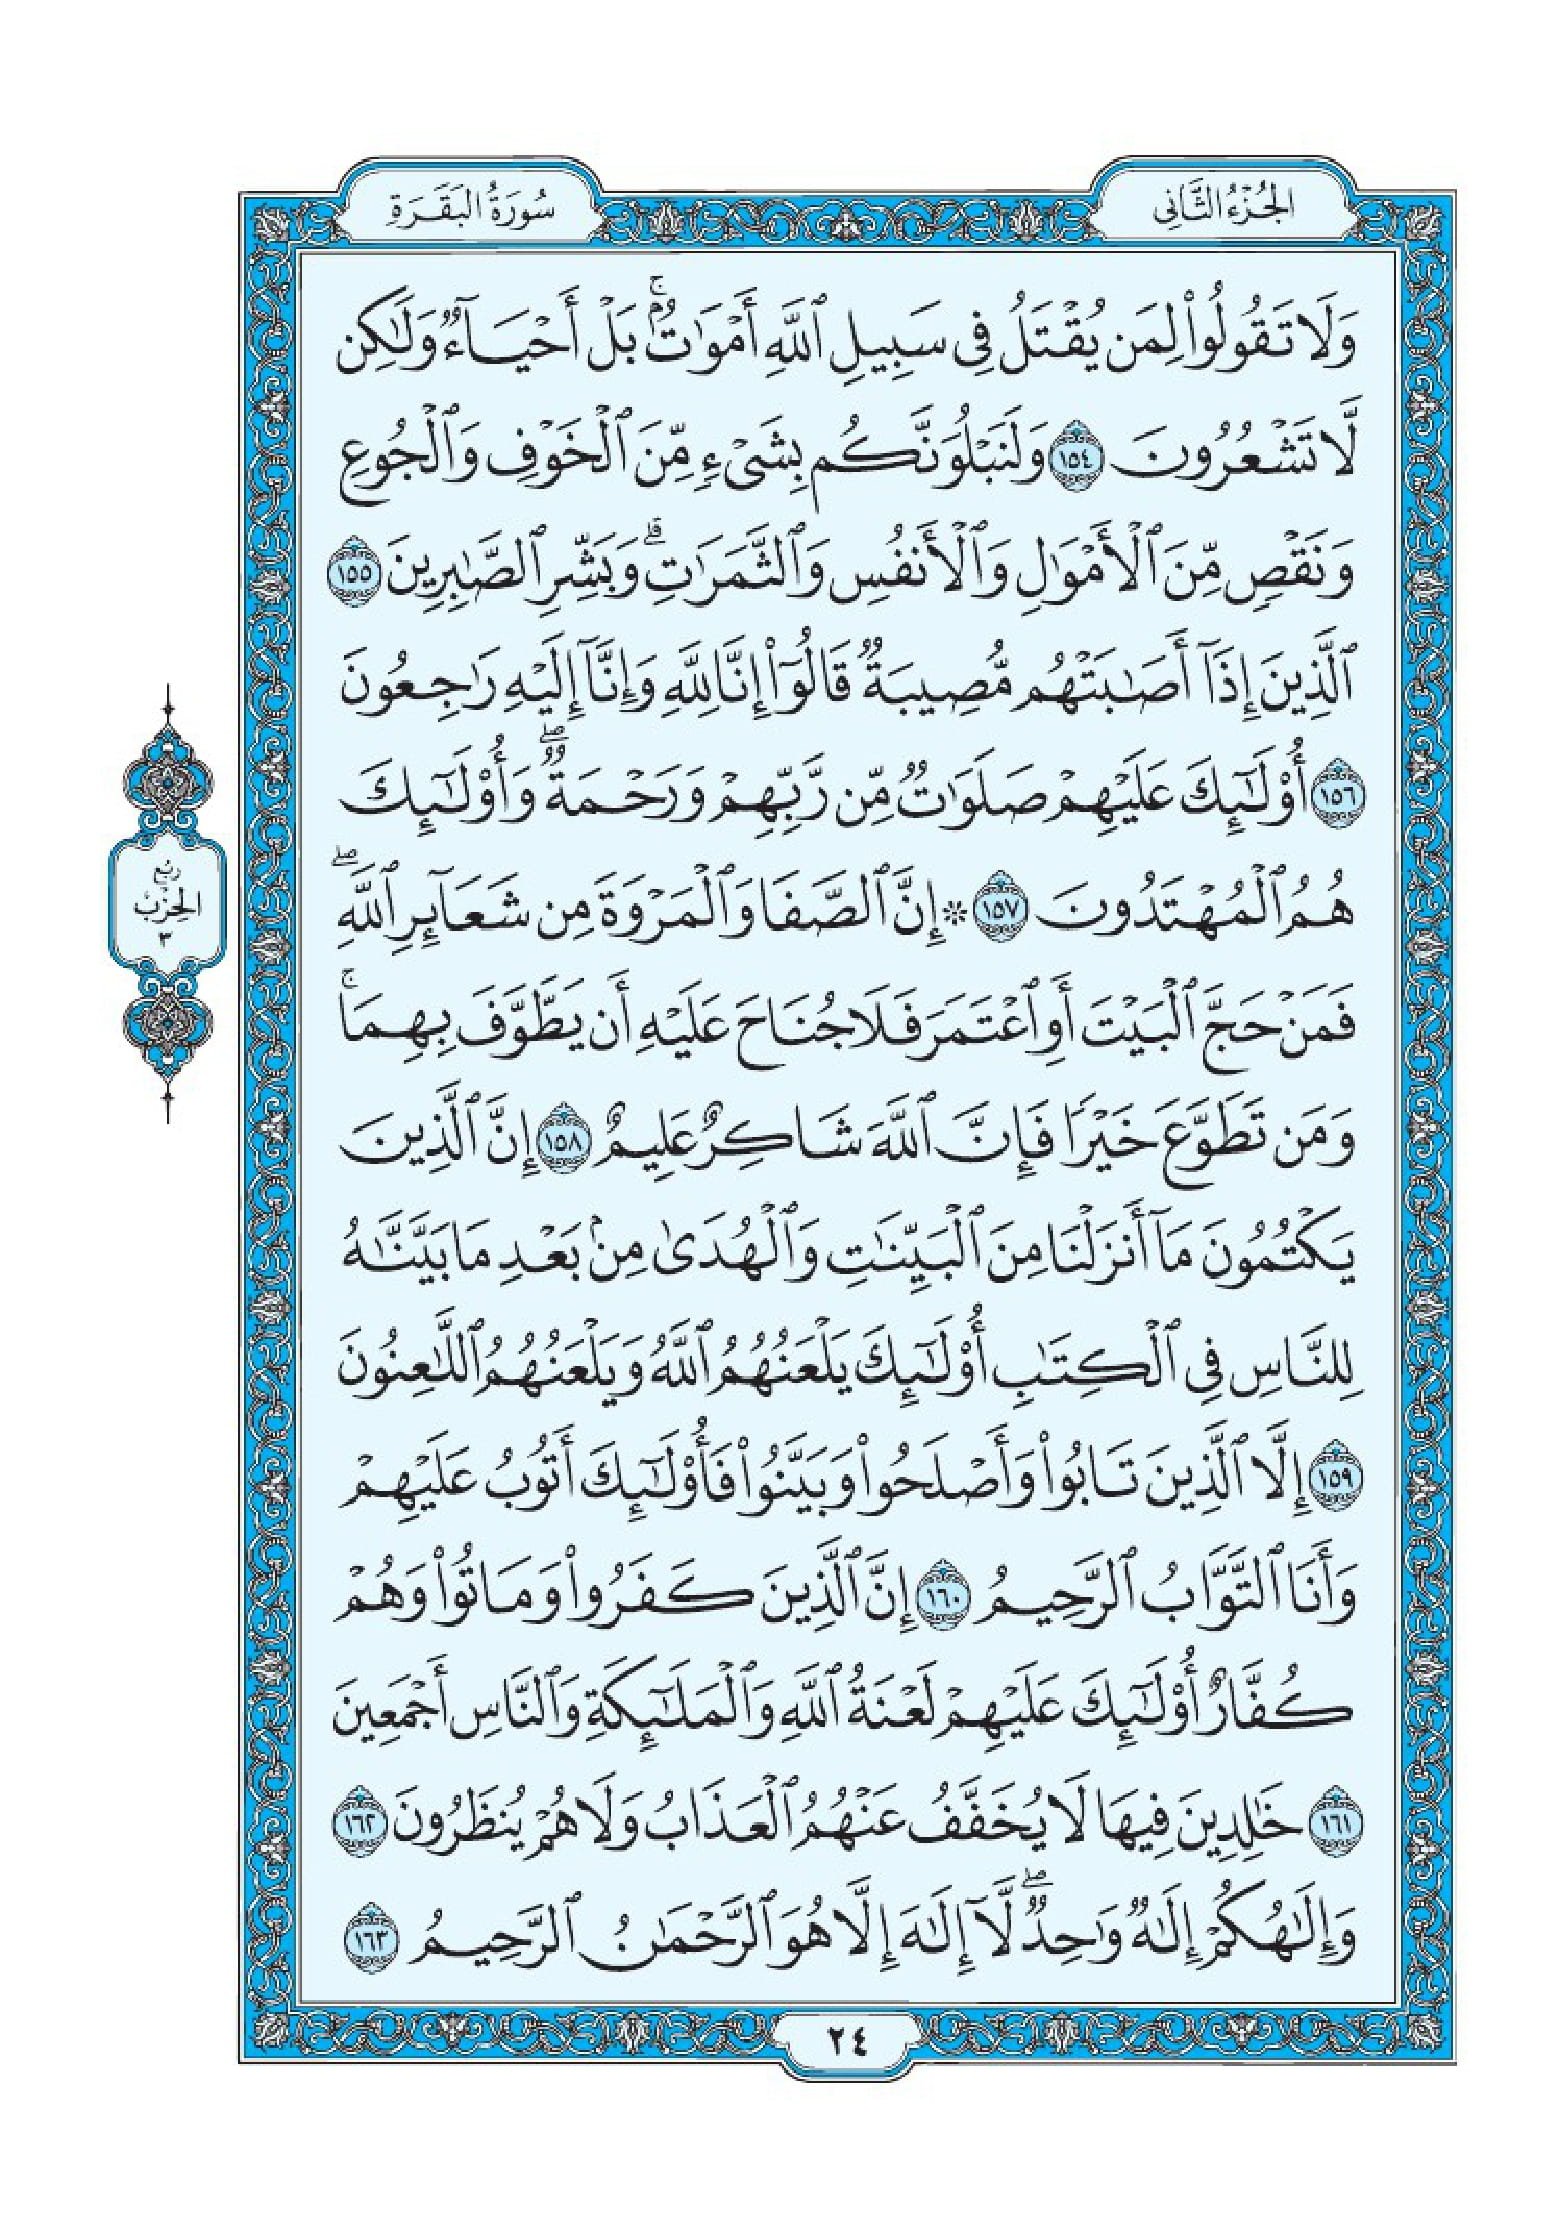 الجُزْءُ الثَّانِي
سُورَةُ البَقَرَةِ
وَلَا تَقُولُوا۟ لِمَن يُقْتَلُ فِى سَبِيلِ ٱللَّهِ أَمْوَٰتٌۢ ۚ بَلْ أَحْيَآءٌۭ وَلَـٰكِن
لَّا تَشْعُرُونَ ١٥٤ وَلَنَبْلُوَنَّكُم بِشَىْءٍۢ مِّنَ ٱلْخَوْفِ وَٱلْجُوعِ
وَنَقْصٍۢ مِّنَ ٱلْأَمْوَٰلِ وَٱلْأَنفُسِ وَٱلثَّمَرَٰتِ ۗ وَبَشِّرِ ٱلصَّـٰبِرِينَ ١٥٥
ٱلَّذِينَ إِذَآ أَصَـٰبَتْهُم مُّصِيبَةٌۭ قَالُوٓا۟ إِنَّا لِلَّهِ وَإِنَّآ إِلَيْهِ رَٰجِعُونَ
١٥٦ أُو۟لَـٰٓئِكَ عَلَيْهِمْ صَلَوَٰتٌۭ مِّن رَّبِّهِمْ وَرَحْمَةٌۭ ۖ وَأُو۟لَـٰٓئِكَ
هُمُ ٱلْمُهْتَدُونَ ١٥٧ ۞ إِنَّ ٱلصَّفَا وَٱلْمَرْوَةَ مِن شَعَآئِرِ ٱللَّهِ ۖ
فَمَنْ حَجَّ ٱلْبَيْتَ أَوِ ٱعْتَمَرَ فَلَا جُنَاحَ عَلَيْهِ أَن يَطَّوَّفَ بِهِمَا ۚ
وَمَن تَطَوَّعَ خَيْرًۭا فَإِنَّ ٱللَّهَ شَاكِرٌ عَلِيمٌ ١٥٨ إِنَّ ٱلَّذِينَ
يَكْتُمُونَ مَآ أَنزَلْنَا مِنَ ٱلْبَيِّنَـٰتِ وَٱلْهُدَىٰ مِنۢ بَعْدِ مَا بَيَّنَّـٰهُ
لِلنَّاسِ فِى ٱلْكِتَـٰبِ أُو۟لَـٰٓئِكَ يَلْعَنُهُمُ ٱللَّهُ وَيَلْعَنُهُمُ ٱللَّـٰعِنُونَ
١٥٩ إِلَّا ٱلَّذِينَ تَابُوا۟ وَأَصْلَحُوا۟ وَبَيَّنُوا۟ فَأُو۟لَـٰٓئِكَ أَتُوبُ عَلَيْهِمْ
وَأَنَا ٱلتَّوَّابُ ٱلرَّحِيمُ ١٦٠ إِنَّ ٱلَّذِينَ كَفَرُوا۟ وَمَاتُوا۟ وَهُمْ
كُفَّارٌ أُو۟لَـٰٓئِكَ عَلَيْهِمْ لَعْنَةُ ٱللَّهِ وَٱلْمَلَـٰٓئِكَةِ وَٱلنَّاسِ أَجْمَعِينَ
١٦١ خَـٰلِدِينَ فِيهَا لَا يُخَفَّفُ عَنْهُمُ ٱلْعَذَابُ وَلَا هُمْ يُنظَرُونَ ١٦٢
وَإِلَـٰهُكُمْ إِلَـٰهٌۭ وَٰحِدٌۭ ۖ لَّآ إِلَـٰهَ إِلَّا هُوَ ٱلرَّحْمَـٰنُ ٱلرَّحِيمُ ١٦٣
رُبْع
الحِزْب
٣
٢٤